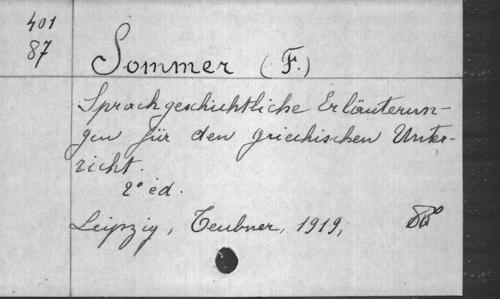 401
87
Sommer (F.)
Sprachgeschichtliche Erläuterun-
gen für den griechischen Unter-
richt.
2º éd.
Leipzig, Teubner, 1919, 8º